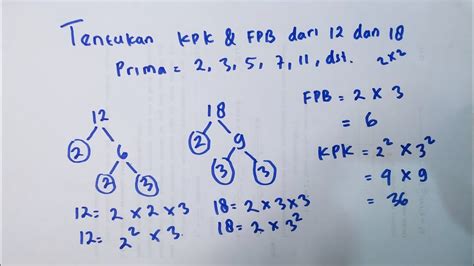 Tentukan KPK & FPB dari 12 dan 18
Prima = 2, 3, 5, 7, 11, dst.
2×2
12
2 6
2 3
12 = 2 × 2 × 3
12 = 2² × 3
18
2 9
3 3
18 = 2 × 3 × 3
18 = 2 × 3²
FPB = 2 × 3
= 6
KPK = 2² × 3²
= 4 × 9
= 36